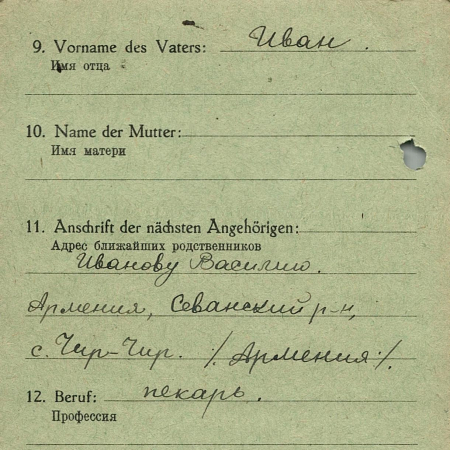 9. Vorname des Vaters: Иван.
Имя отца
10. Name der Mutter:
Имя матери
11. Anschrift der nächsten Angehörigen:
Адрес ближайших родственников
Иванову Василию.
Армения, Севанский р-н,
с. Чир-Чир. /. Армения /.
12. Beruf: пекарь.
Профессия